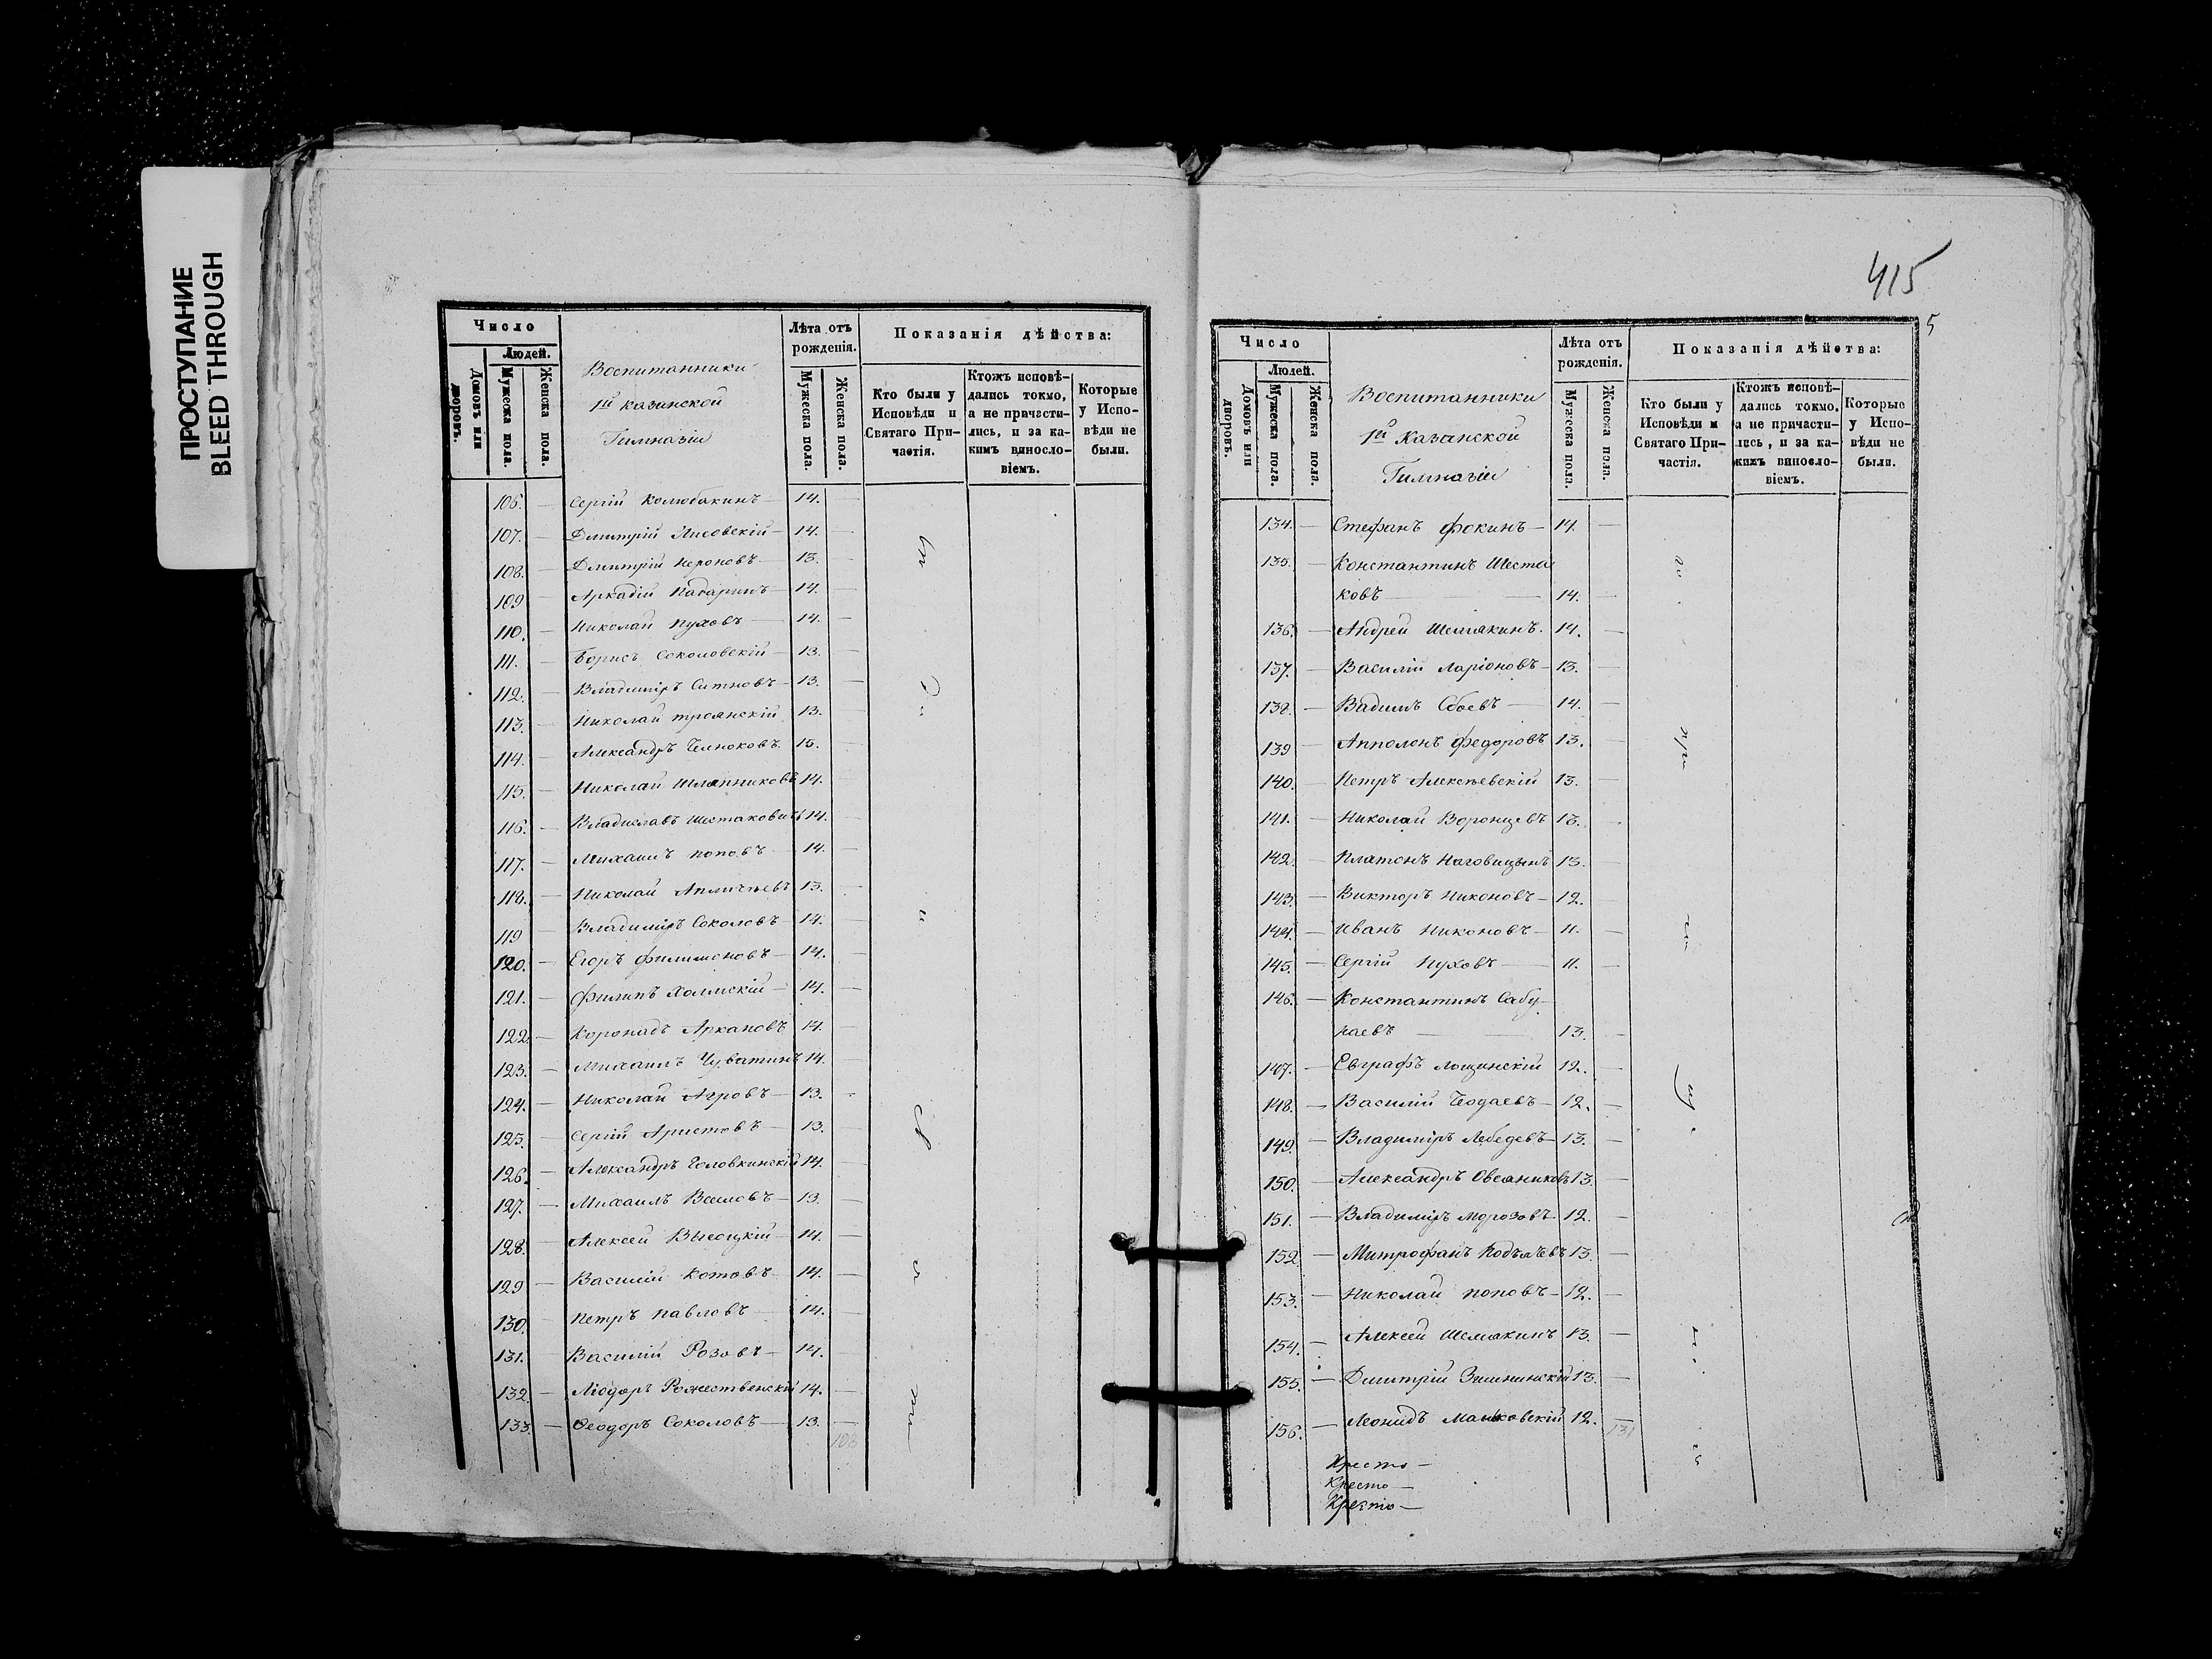 ПРОСТУПАНИЕ
BLEED THROUGH
Число
Людей.
Домовъ или дворовъ.
Мужеска пола.
Женска пола.
Воспитанники
1й казанской
Гимназіи
Лѣта отъ рожденія.
Мужеска пола.
Женска пола.
Показанія дѣйства:
Кто были у Исповѣди и Святаго Причастія.
Ктожъ исповѣдались токмо, а не причастились, и за какимъ винословіемъ.
Которые у Исповѣди не были.
106. — Сергій Колюбакинъ — 14. —
107. — Дмитрій Лисовскій — 14. —
108. — Дмитрій Нероновъ — 13. —
109 — Аркадій 14. —
110. — Николай Пуховъ — 14. —
111. — Борисъ Соколовскій — 13. —
112. — Владиміръ Ситновъ — 13. —
113. — Николай Троянскій 13. —
114. — Александръ 15. —
115. — Николай Шляпниковъ 14. —
116. — Владиславъ Шестаковичъ 14. —
117. — Михаилъ Поповъ — 14. —
118. — Николай 13. —
119 — Владиміръ Соколовъ — 14. —
120. — Егоръ Филимоновъ — 14. —
121. — Филипъ Холмскій — 14. —
122. — 14. —
123. — Михаилъ Чуватинъ 14. —
124. — Николай Агровъ — 13. —
125. — Сергій Аристовъ — 13. —
126. — Александръ Головкинскій 14. —
127. — Михаилъ 13. —
128. — Алексей Высоцкій — 14. —
129 — Василій Котовъ — 14. —
130. — Петръ Павловъ — 14. —
131. — Василій Розовъ — 14. —
132 — Рожественскій 14. —
133. — Ѳеодоръ Соколовъ — 13. —
108
415
5
Число
Людей.
Домовъ или дворовъ.
Мужеска пола.
Женска пола.
Воспитанники
1й Казанской
Гимназіи
Лѣта отъ рожденія.
Мужеска пола.
Женска пола.
Показанія дѣйства:
Кто были у Исповѣди и Святаго Причастія.
Ктожъ исповѣдались токмо, а не причастились, и за какимъ винословіемъ.
Которые у Исповѣди не были.
134. — Стефанъ Фокинъ — 14. —
135. — Константинъ Шеста
ковъ — 14. —
136. — Андрей Шемякинъ. 14. —
137. — Василій Ларіоновъ — 13. —
138. — Вадимъ Сбоевъ — 14. —
139 — Апполонъ Федоровъ 13. —
140. — Петръ Алексѣевскій 13. —
141. — Николай Воронцевъ 13. —
142. — Платонъ Наговицынъ 13. —
143. — Викторъ Никоновъ — 12. —
144. — Иванъ Никоновъ — 11. —
145. — Сергій Пуховъ — 11. —
146. — Константинъ Сабу-
13. —
147. — Евграфъ Лощинскій 12. —
148. — Василій 12. —
149. — Владиміръ Лебедевъ — 13. —
150. — Александръ Овсяниковъ 13. —
151. — Владиміръ Морозовъ. 12. —
152 — Митрофанъ 13. —
153. — Николай Поповъ — 12. —
154. — Алексей Шемякинъ 13. —
155. — Дмитрій Зименинскій 13. —
156. — Леонидъ 12. —
131
Кресто —
Кресто —
Кресто —